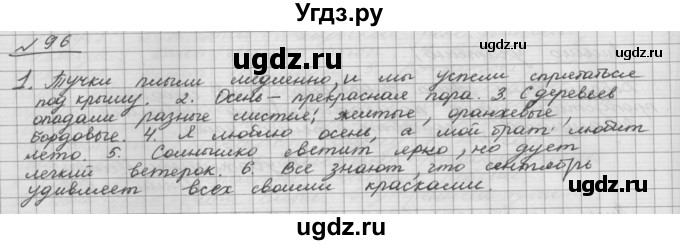 Угдз.ру
№ 96
1. Тучки плыли медленно, и мы успели спрятаться
под крышу. 2. Осень – прекрасная пора. 3. С деревьев
опадали разные листья: желтые, оранжевые,
бордовые. 4. Я люблю осень, а мой брат любит
лето. 5. Солнышко светит ярко, но дует
легкий ветерок. 6. Все знают, что сентябрь
удивляет всех своими красками.
ugdz.ru
ugdz.ru
ugdz.ru
ugdz.ru
ugdz.ru
ugdz.ru
ugdz.ru